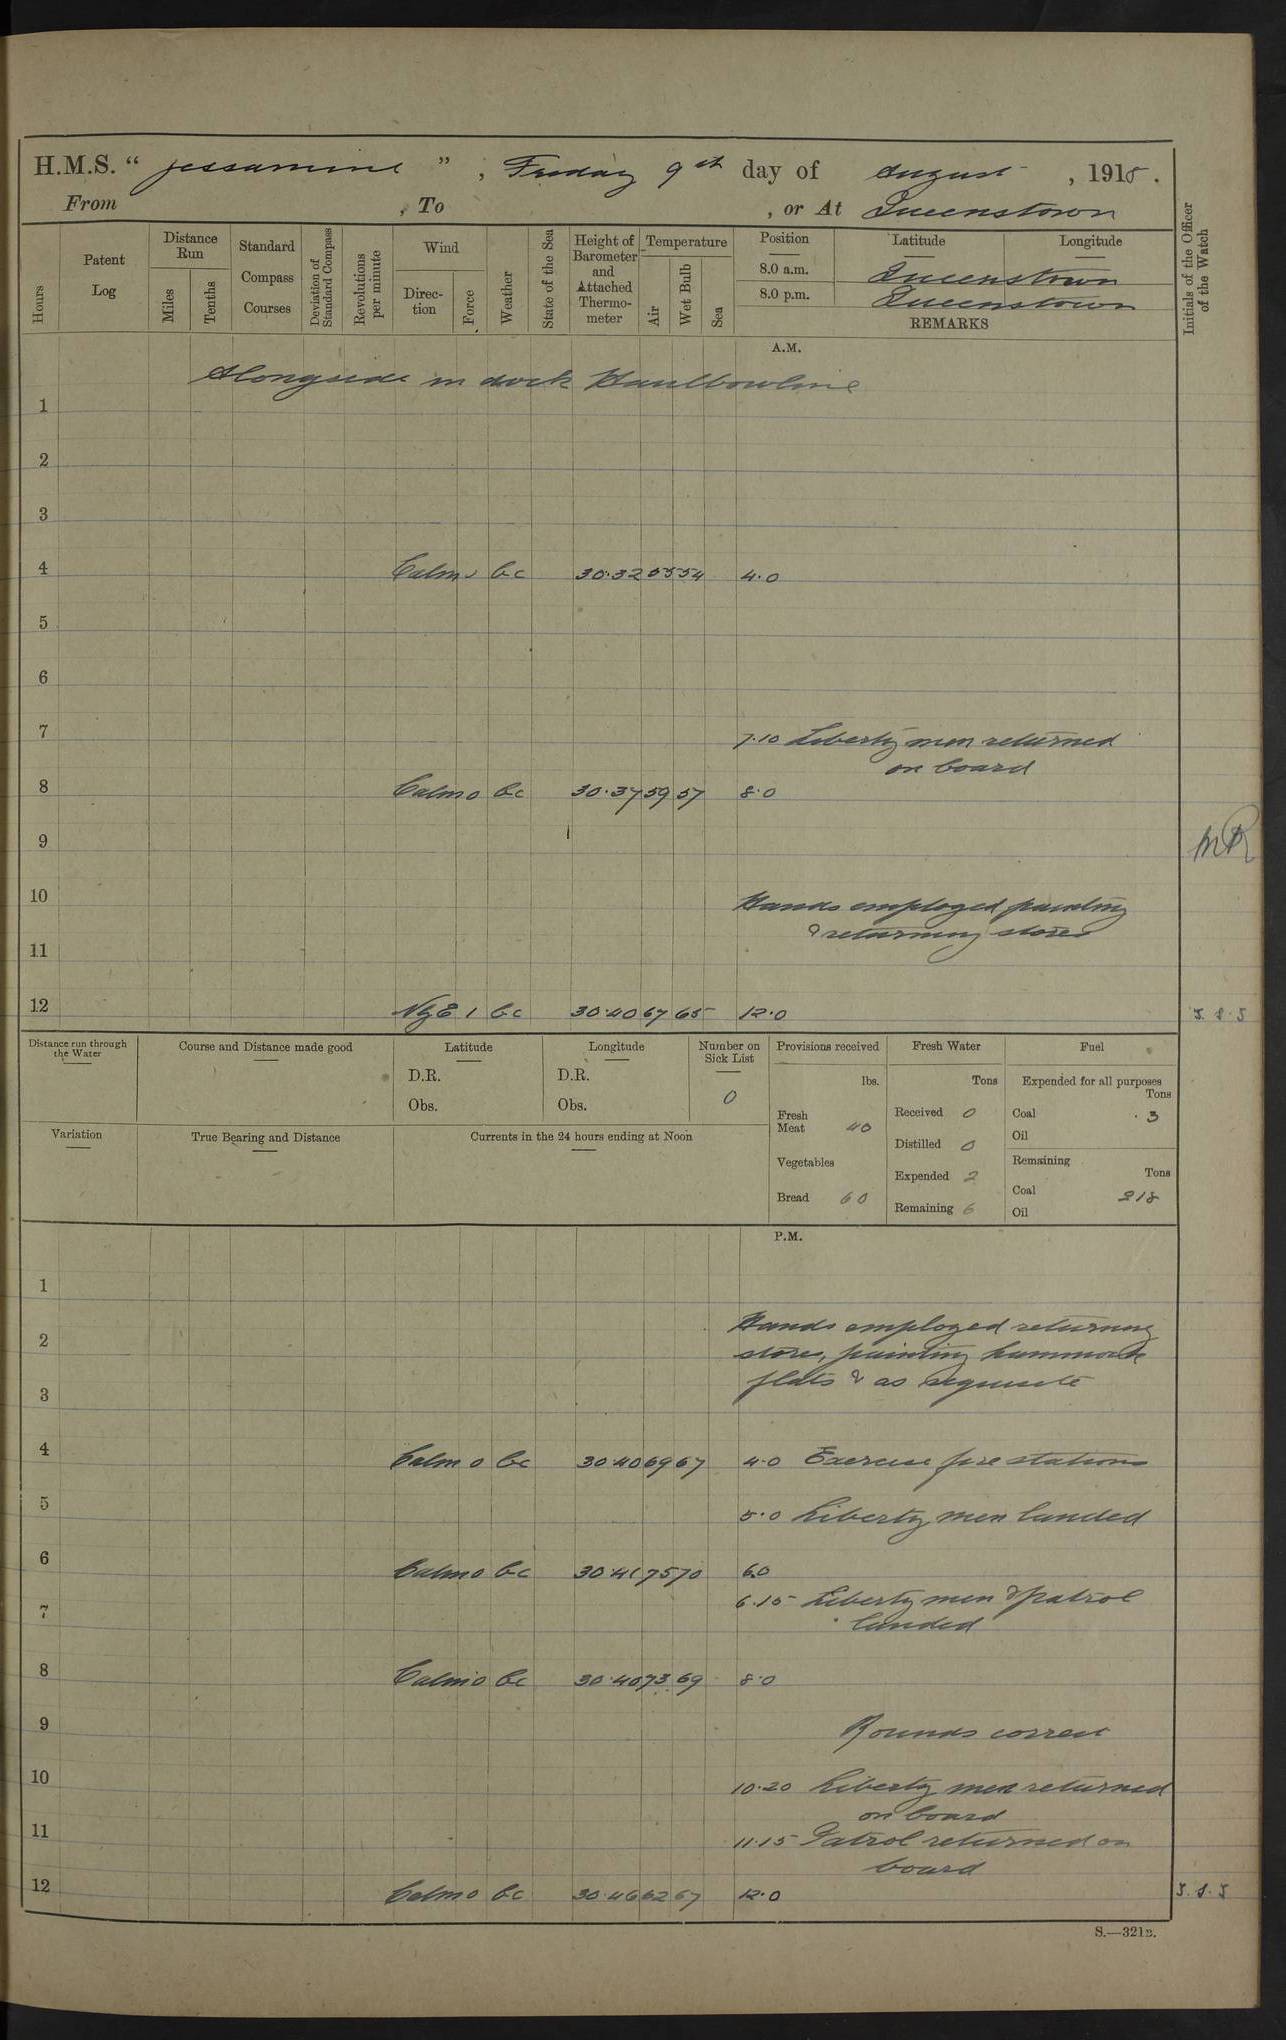 H.M.S. “ Jessamine ” , Friday 9th day of August , 1918 .
From , To , or At Queenstown
Hours
Patent Log
Distance Run
Miles
Tenths
Standard Compass Courses
Deviation of Standard Compass
Revolutions per minute
Wind
Direction
Force
Weather
State of the Sea
Height of Barometer and Attached Thermometer
Temperature
Air
Wet Bulb
Sea
Position Latitude Longitude
8.0 a.m. Queenstown
8.0 p.m. Queenstown
REMARKS
Initials of the Officer of the Watch
A.M.
Alongside in dock Haulbowline
1
2
3
4 Calm 0 bc 30.32 55 54 4.0
5
6
7 7.10 Liberty men returned
on board
8 Calm 0 bc 30.37 59 57 8.0
9
10 Hands employed painting
& returning stores
11
12 NbyE 1 bc 30.40 67 65 12.0
Distance run through the Water
Course and Distance made good
Latitude
D.R.
Obs.
Longitude
D.R.
Obs.
Number on Sick List
0
Variation
True Bearing and Distance
Currents in the 24 hours ending at Noon
Provisions received
lbs.
Fresh Meat 40
Vegetables
Bread 60
Fresh Water
Tons
Received 0
Distilled 0
Expended 2
Remaining 6
Fuel
Expended for all purposes
Tons
Coal 3
Oil
Remaining
Tons
Coal 218
Oil
P.M.
1
2 Hands employed returning
stores, painting hammock
3 flats & as requisite
4 Calm 0 bc 30.40 69 67 4.0 Exercise fire stations
5 5.0 Liberty men landed
6 Calm 0 bc 30.41 75 70 6.0
6.15 Liberty men & patrol
7 landed
8 Calm 0 bc 30.40 73 69 8.0
9 Rounds correct
10 10.20 Liberty men returned
on board
11 11.15 Patrol returned on
board
12 Calm 0 bc 30.46 62 67 12.0
S.—321B.